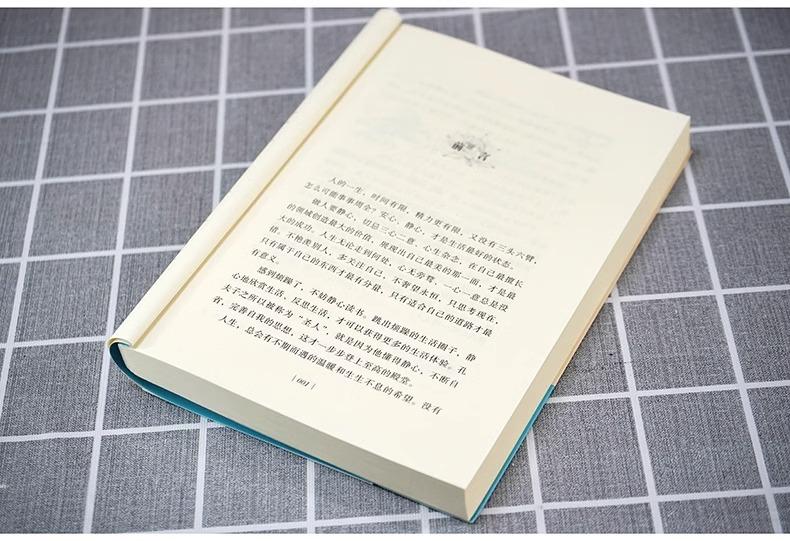 前言
人的一生，时间有限，精力更有限，又没有三头六臂，
怎么可能事事周全？安心、静心，才是生活最好的状态。
做人要静心，切忌三心二意、心生杂念，在自己最擅长
的领域创造最大的价值，展现出自己最美的那一面，才是最
大的成功。人生无论走到何处，心无旁骛、一心一意总是没
错。不艳羡别人，多关注自己，不奢望永恒，只思考现在，
只有属于自己的东西才最有分量，只有适合自己的道路才最
有意义。
感到烦躁了，不妨静心读书，跳出烦躁的生活圈子，静
心地欣赏生活、反思生活，才可以获得更多的生活体验。孔
夫子之所以被称为“圣人”，就是因为他懂得静心，不断自
省，完善自我的思想，这才一步步登上至高的殿堂。
人生，总会有不期而遇的温暖和生生不息的希望。没有
| 001 |